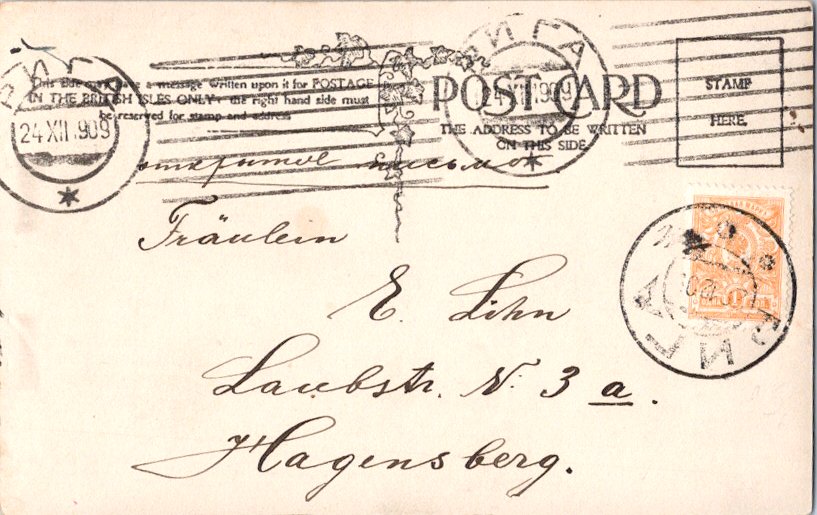 РИГА
24 XII 909
РИГА
24 XII 1909
This side may have a message written upon it for POSTAGE
IN THE BRITISH ISLES ONLY - the right hand side must
be reserved for stamp and address
POST CARD
THE ADDRESS TO BE WRITTEN
ON THIS SIDE.
STAMP
HERE.
открытое письмо
Fräulein
E. Lihn
Laubstr. N: 3 a.
Hagensberg.
РИГА